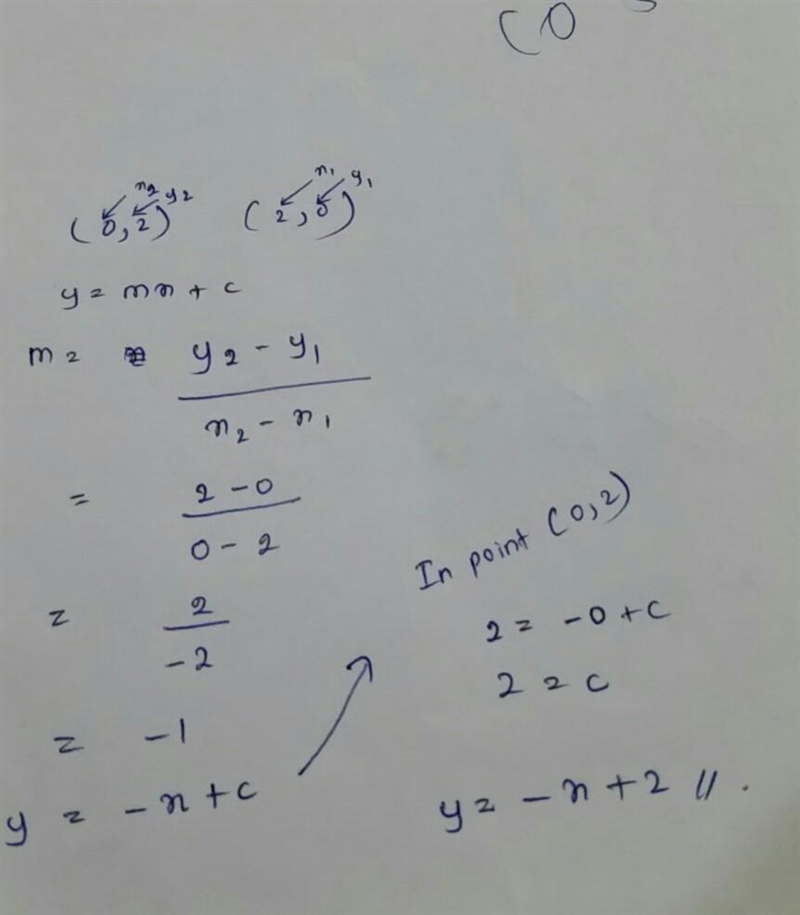 (0
x₂ y₂ x₁ y₁
(0, 2) (2, 0)
y = mx + c
m = y₂ - y₁
x₂ - x₁
= 2 - 0
0 - 2
= 2
-2
= -1
y = -x + c
In point (0,2)
2 = -0 + c
2 = c
y = -x + 2 //.